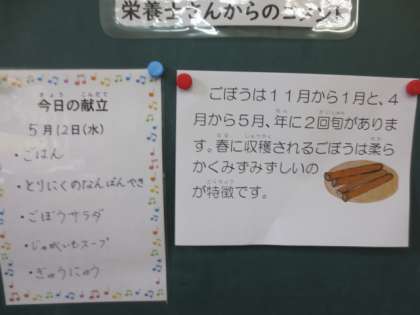 栄養士さんからのコメント
今日の献立
5月12日(水)
・ごはん
・とりにくのなんばんやき
・ごぼうサラダ
・じゃがいもスープ
・ぎゅうにゅう
ごぼうは11月から1月と、4
月から5月、年に2回旬がありま
す。春に収穫されるごぼうは柔ら
かくみずみずしいの
が特徴です。